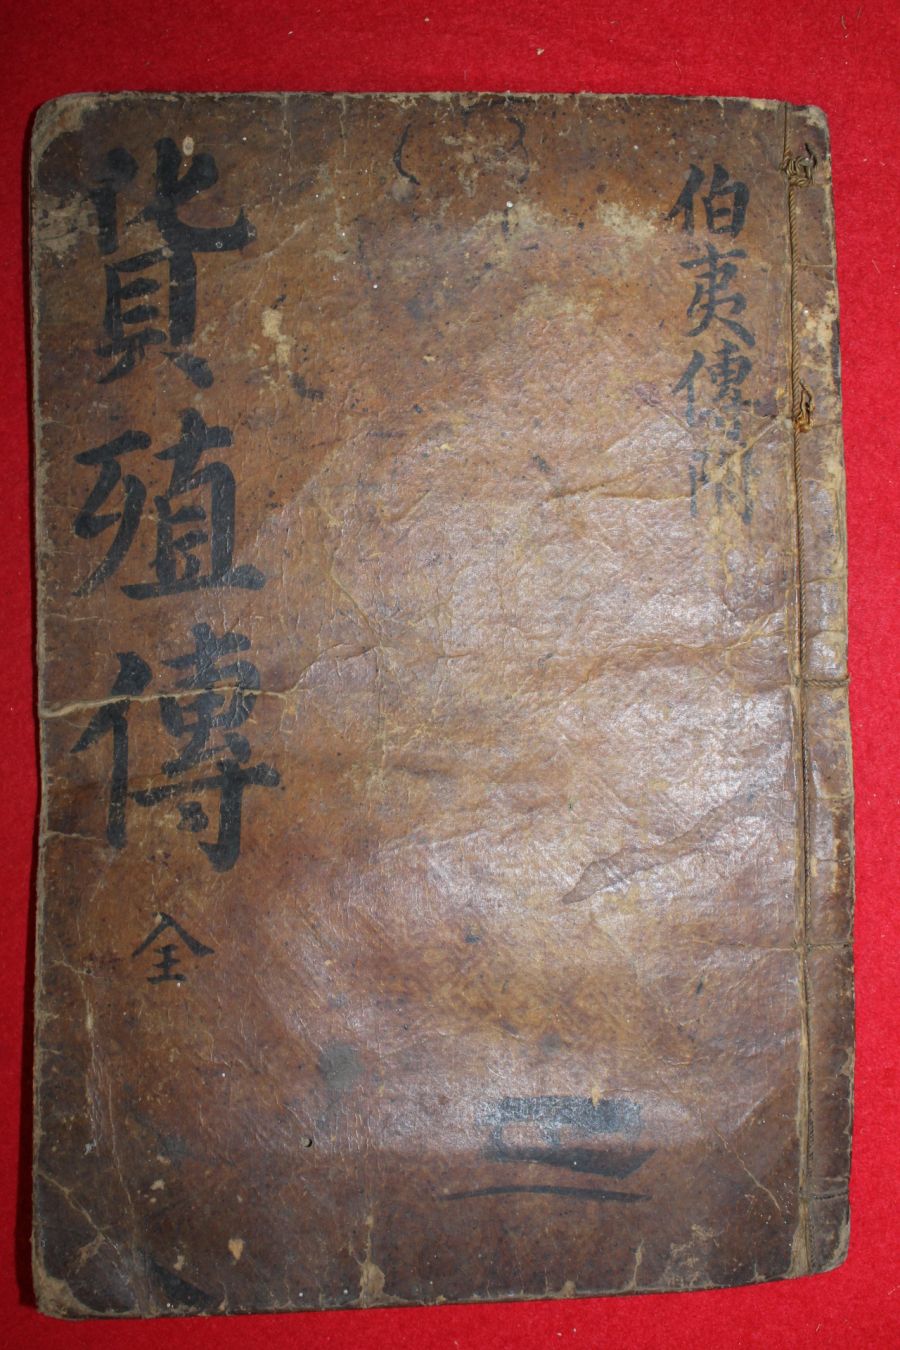 伯夷傳附
貨殖傳
全